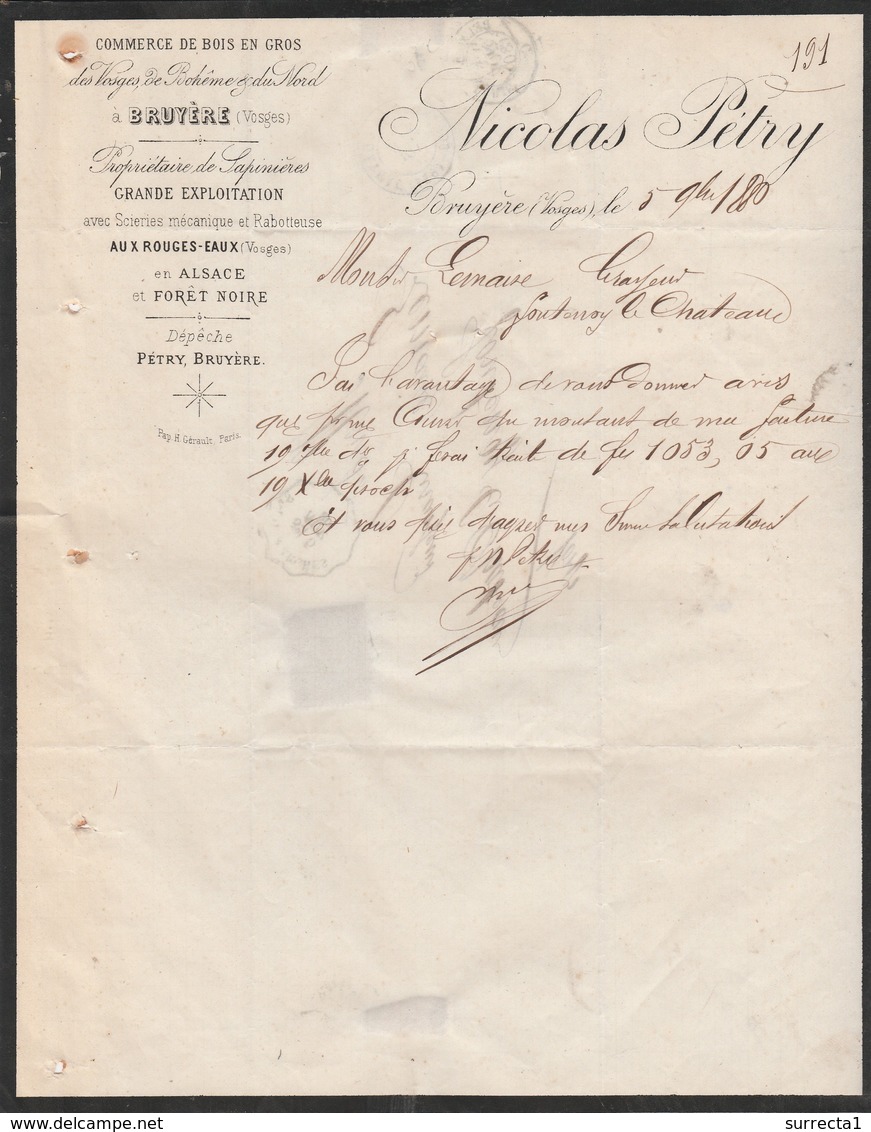 COMMERCE DE BOIS EN GROS
des Vosges, de Bohême & du Nord
à BRUYÈRE (Vosges)
Propriétaire de Sapinières
GRANDE EXPLOITATION
avec Scieries mécanique et Rabotteuse
AUX ROUGES-EAUX (Vosges)
en ALSACE
et FORÊT NOIRE
Dépêche
PÉTRY, BRUYÈRE.
Pap. H. Gérault, Paris.
191
Nicolas Pétry
Bruyère (Vosges), le 5 9bre 1880
Lemaire
fontenoy le Chateau
J'ai l'avantage de vous donner avis
que du montant de ma facture
19 j ferai traite de fr 1053, 05 aux
19 Xbre proch
Et vous d'agreer mes salutations
surrecta1